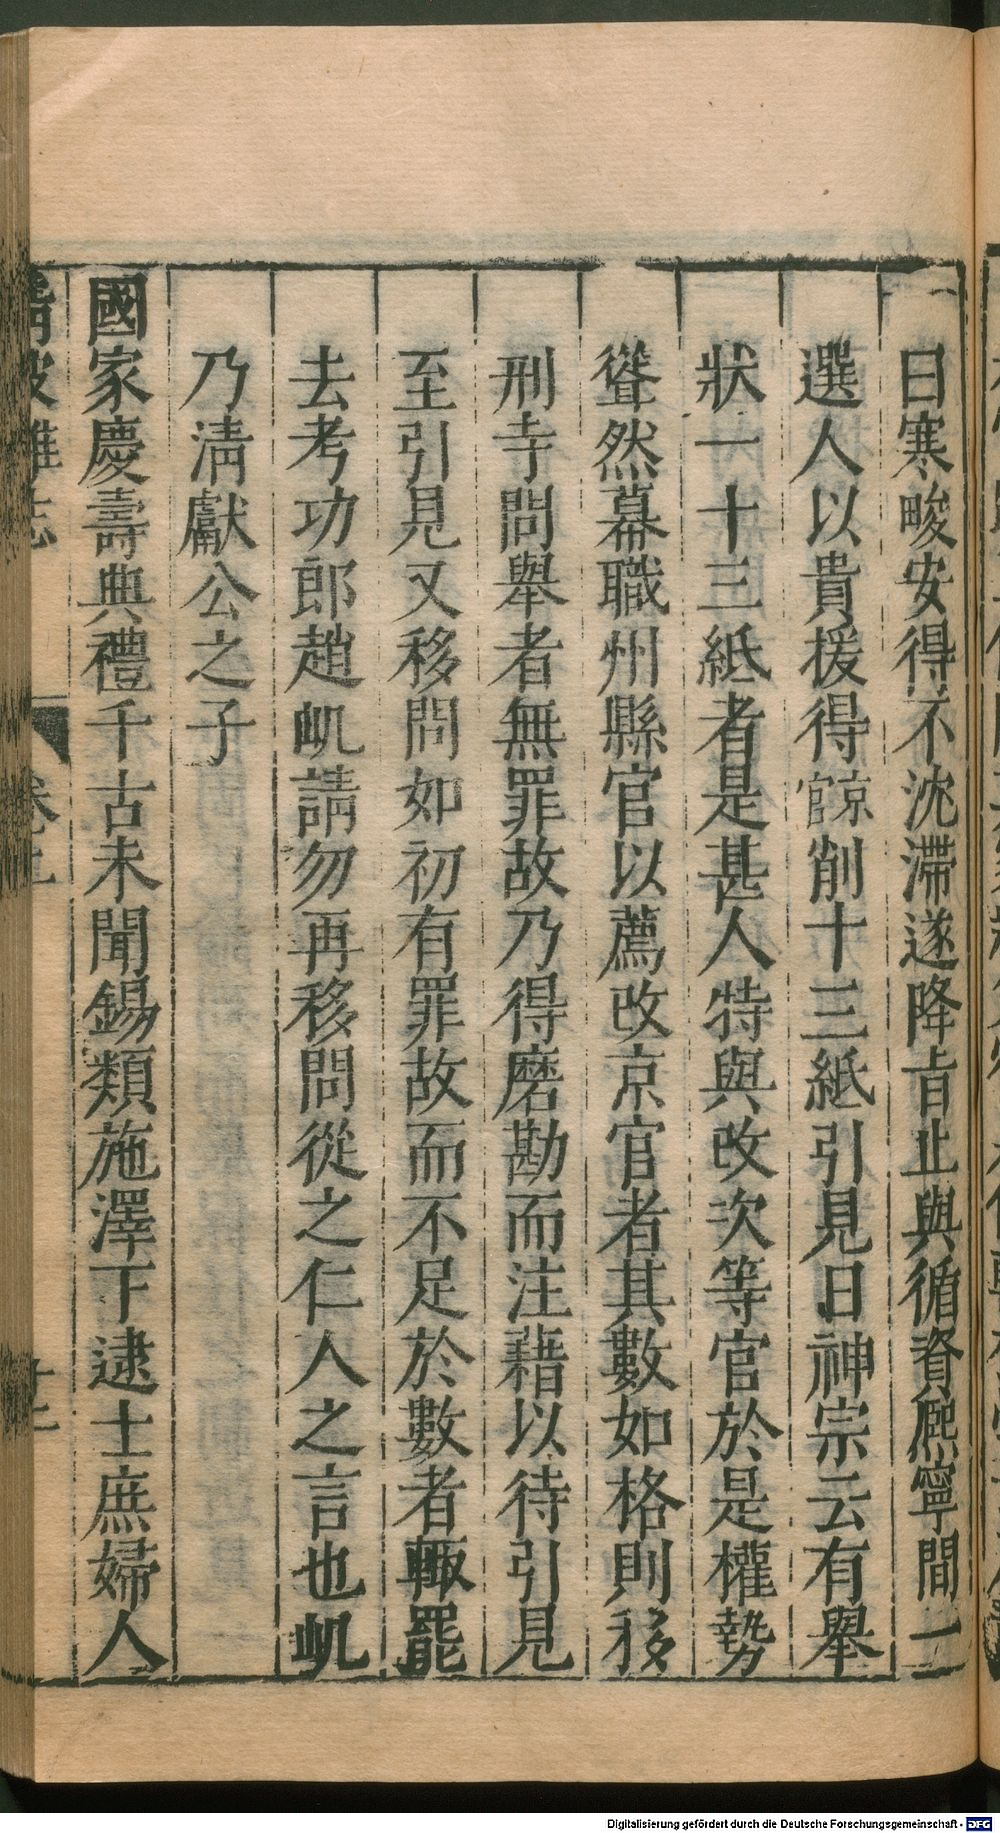 曰寒畯安得不沈滯遂降旨止與循資熈寧間一
選人以貴援得京官削十三紙引見日神宗云有舉
狀一十三紙者是甚人特與改次等官於是權勢
聳然幕職州縣官以薦改京官者其數如格則移
刑寺問舉者無罪故乃得磨勘而注藉以待引見
至引見又移問如初有罪故而不足於數者輙罷
去考功郎趙㞦請勿再移問從之仁人之言也㞦
乃淸獻公之子
國家慶壽典禮千古未聞錫類施澤下逮士庶婦人
雜志
Digitalisierung gefördert durch die Deutsche Forschungsgemeinschaft - DFG